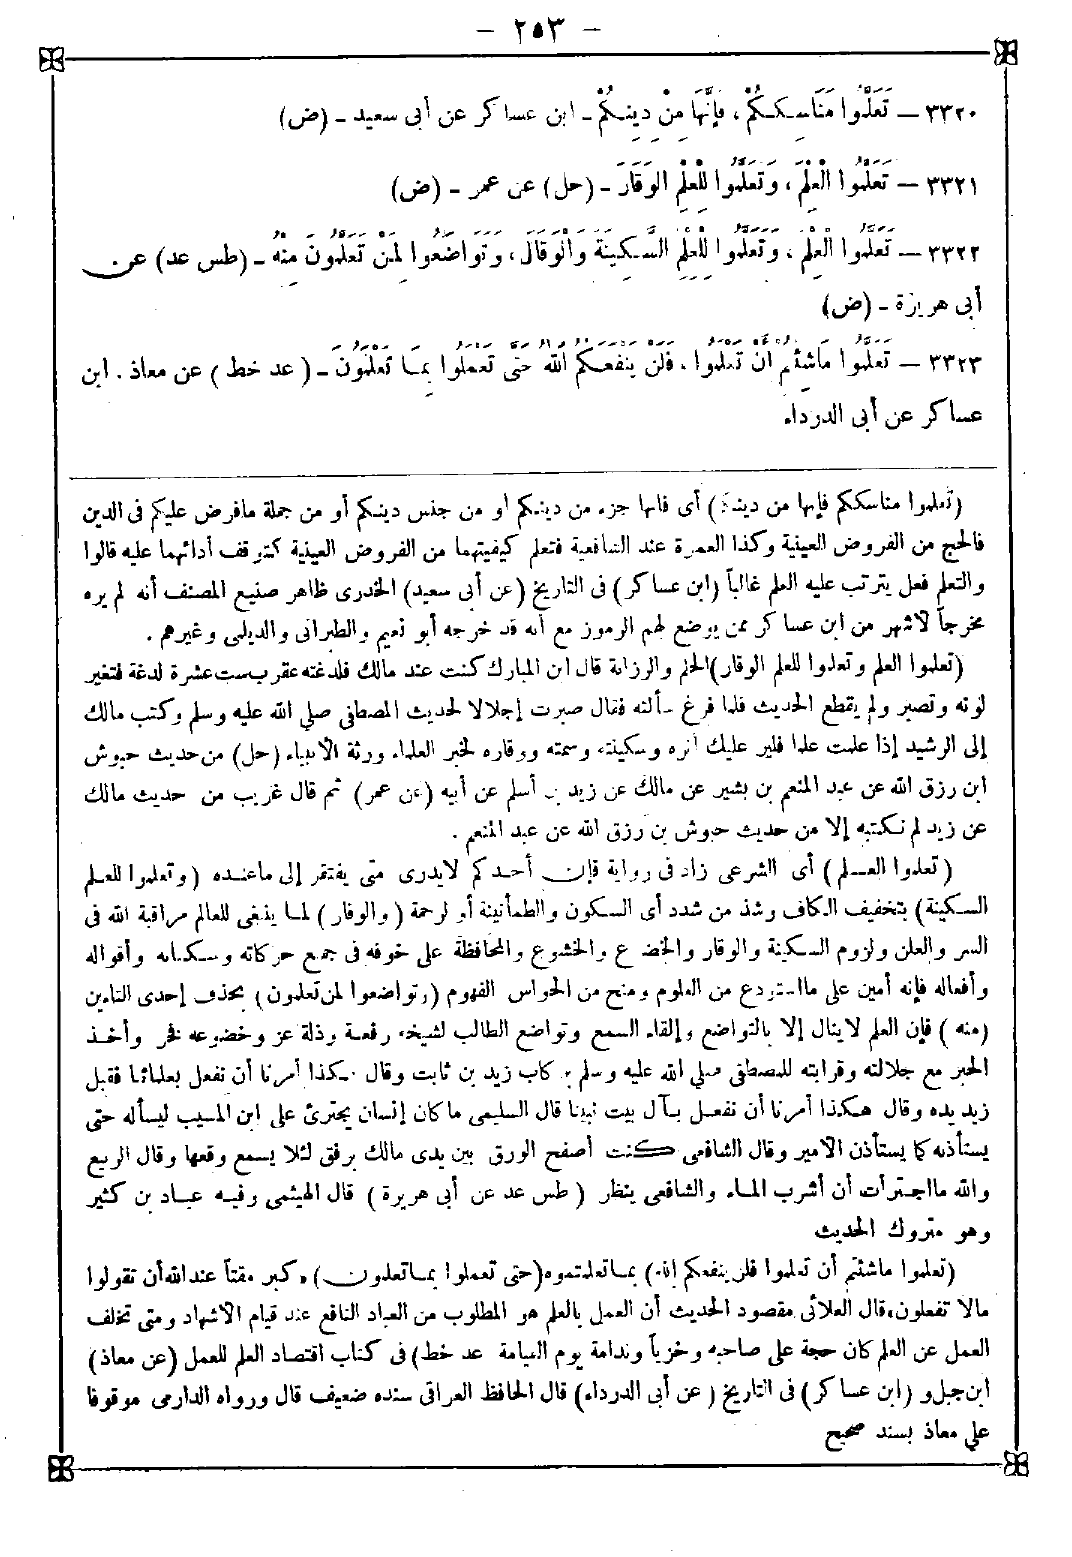 – ٢٥٣ –
٣٣٢٠ – تَعَلَّمُوا مَنَاسِكَكُمْ، فَإِنَّهَا مِنْ دِينِكُمْ - ابن عساكر عن أبى سعيد - (ض)
٣٣٢١ – تَعَلَّمُوا الْعِلْمَ، وَتَعَلَّمُوا لِلْعِلْمِ الْوَقَارَ - (حل) عن عمر - (ض)
٣٣٢٢ – تَعَلَّمُوا الْعِلْمَ، وَتَعَلَّمُوا لِلْعِلْمِ السَّكِينَةَ وَالْوَقَارَ، وَتَوَاضَعُوا لِمَنْ تَعَلَّمُونَ مِنْهُ - (طس عد) عن
أبى هريرة - (ض)
٣٣٢٣ – تَعَلَّمُوا مَاشِئْتُمْ أَنْ تَعْلَمُوا، فَلَنْ يَنْفَعَكُمُ اللهُ حَتَّى تَعْمَلُوا بِمَا تَعْلَمُونَ - (عد خط) عن معاذ . ابن
عساكر عن أبى الدرداء
(تعلموا مناسككم فإنها من دينكم) أى فانها جزء من دينكم أو من جنس دينكم أو من جملة مافرض عليكم فى الدين
فالحج من الفروض العينية وكذا العمرة عند الشافعية فتعلم كيفيتهما من الفروض العينية كتوقف أدائهما عليه قالوا
والتعلم فعل يترتب عليه العلم غالباً (ابن عساكر) فى التاريخ (عن أبى سعيد) الخدرى ظاهر صنيع المصنف أنه لم يره
مخرجاً لأشهر من ابن عساكر ممن يوضع لهم الرموز مع أنه قد خرجه أبو نعيم والطبرانى والديلى وغيرهم .
(تعلموا العلم وتعلموا للعلم الوقار) الحلم والرزانة قال ابن المبارك كنت عند مالك فلدغته عقرب ست عشرة لدغة فتغير
لونه وتصبر ولم يقطع الحديث فلما فرغ سألته فقال صبرت إجلالا لحديث المصطفى صلى الله عليه وسلم وكتب مالك
إلى الرشيد إذا علمت علما فلير عليك أثره وسكينته وسمته ووقاره لخبر العلماء ورثة الأنبياء (حل) من حديث حبوش
ابن رزق الله عن عبد المنعم بن بشير عن مالك عن زيد بن أسلم عن أبيه (عن عمر) ثم قال غريب من حديث مالك
عن زيد لم نكتبه إلا من حديث حبوش بن رزق الله عن عبد المنعم .
(تعلموا العلم) أى الشرعى زاد فى رواية فإن أحدكم لايدرى متى يفتقر إلى ماعنده (وتعلموا للعلم
السكينة) بتخفيف الكاف وشذ من شدد أى السكون والطمأنينة أو لرحمة (والوقار) لما ينبغى للعالم مراقبة الله فى
السر والعلن ولزوم السكينة والوقار والخضوع والخشوع والمحافظة على خوفه فى جمع حركاته وسكناته وأقواله
وأفعاله فإنه أمين على مااستودع من العلوم ومنح من الحواس الفهوم (وتواضعوا لمن تعلمون) بحذف إحدى التاءين
(منه) فإن العلم لاينال إلا بالتواضع وإلقاء السمع وتواضع الطالب لشيخه رفعة وذلة عز وخضوعه فخر وأخذ
الحبر مع جلالته وقرابته للمصطفى صلى الله عليه وسلم بركاب زيد بن ثابت وقال هكذا أمرنا أن نفعل بعلمائنا فقبل
زيد يده وقال هكذا أمرنا أن نفعل بآل بيت نبينا قال السليمى ما كان إنسان يجترئ على ابن المسيب ليسأله حتى
يستأذنه كما يستأذن الأمير وقال الشافعى كنت أصفح الورق بين يدى مالك برفق لئلا يسمع وقعها وقال الربيع
والله مااجترأت أن أشرب الماء والشافعى ينظر (طس عد عن أبى هريرة) قال الهيثمى وفيه عباد بن كثير
وهو متروك الحديث
(تعلموا ماشئتم أن تعلموا فلن ينفعكم الله) بما تعلمتموه (حتى تعملوا بما تعلمون) «كبر مقتاً عند الله أن تقولوا
مالا تفعلون» قال العلائى مقصود الحديث أن العمل بالعلم هو المطلوب من العباد النافع عند قيام الأشهاد ومتى تخلف
العمل عن العلم كان حجة على صاحبه وخزياً وندامة يوم القيامة (عد خط) فى كتاب اقتضاء العلم للعمل (عن معاذ)
ابن جبل و (ابن عساكر) فى التاريخ (عن أبى الدرداء) قال الحافظ العراقى سنده ضعيف قال ورواه الدارمى موقوفا
على معاذ بسند صحيح